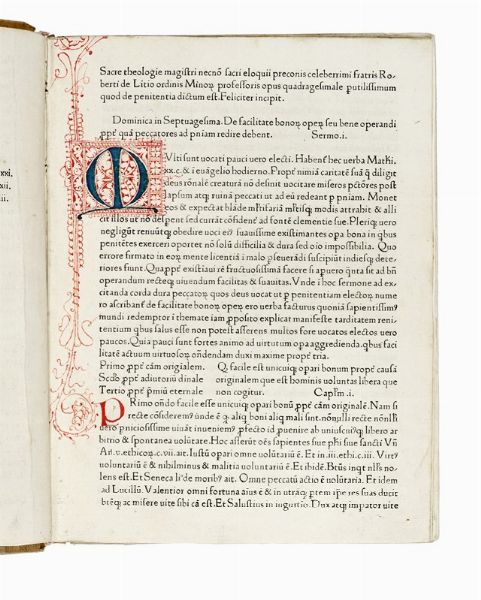 Sacre theologie magistri necnõ sacri eloquii preconis celeberrimi fratris Ro-
berti de Litio ordinis Minoꝝ professoris opus quadragesimale putilissimum
quod de penitentia dictum est. Feliciter incipit.
Dominica in Septuagesima. De facilitate bonoꝝ opeꝝ seu bene operandi
ꝓpẽ quã peccatores ad pniam redire debent. Sermo.i.
MVlti sunt uocati pauci uero electi. Habent hec verba Mathi.
xx.c. & i euãgelio hodierno. Propẽ nimiã caritatẽ suã q̃ diligit
deus rõnalẽ creaturã nõ definit uocitare miseros pctõres post
lapsum atqȝ ruinã peccati ut ad eũ redeant ꝑ pniam. Monet
eos & expectat
cit illos ut nõ despent sed currãt cõfidenẽ ad fontẽ clementie sue. Pleriqȝ uero
negligũt renuũtqȝ obedire uoci ei⁹ suauissime existimantes opa bona in qbus
penitẽtes exerceri oportet nõ solũ difficilia & dura sed oio impossibilia. Quo
errore firmato in eoȝ mente licentiã i malo ꝑseuerãdi suscipiũt indiesqȝ dete-
riores fiunt.
operandum recteqȝ uiuendum facilitas & suauitas. Vnde i hoc sermone ad ex-
citanda corda dura peccatoꝝ quos deus uocat ut ꝑ penitentiam electoꝝ nume
ro ascribant de facilitate bonoꝝ opeꝝ ero verba facturus quoniã sapientissim⁹
mundi redemptor i themate iam ꝓposito explicat manifeste tarditatem reni-
tentium qbus salus esse non potest asserens multos fore uocatos electos uero
paucos. Quia pauci sunt fortes animo ad uirtutum opa aggredienda. qbus faci
litatẽ actuum uirtuosoꝝ oñdendam duxi maxime propẽ tria.
Primo ꝓpẽ cãm origialem. Q. facile est unicuiqȝ opari bonum propẽ causã
Scdõ ꝓpẽ adiutoriũ diuinale originalem que est hominis uoluntas libera que
Tertio ꝓpẽ pmiũ eternale non cogitur. Capĩm.i.
PRimo oñdo facile esse unicuiqȝ opari bonũ ꝓpẽ cãm originalẽ. Nam si
recte cõsiderem⁹ ũnde ẽ q̃ aliq boni aliq mali sint. nõnulli recte nõnlli
uero
bitrio & spontanea volũtate. Hoc asserũt oẽs sapientes siue phi siue sancti Vñ
Ar̃. v. ethicoꝝ. c. vii. ait. Iustũ opari omne voluntariũ ẽ. Et in.iii.ethi.c.iii. Virt⁹
voluntariũ ẽ & nihilminus & malitia voluntariũ ẽ. Et ibidẽ. Btũs inqt nłłs no-
lens est. Et Seneca li⁰ de morib⁹ ait. Omne peccatũ actio ẽ volũtaria. Et idem
ad Lucillũ. Valentior omni fortuna aius ẽ & in utrãqȝ ptem ipe res suas ducit
btẽqȝ ac misere vite sibi cã est. Et Salustius in iugurtio. Dux atqȝ impator vite
xxi.
xii.
ii.